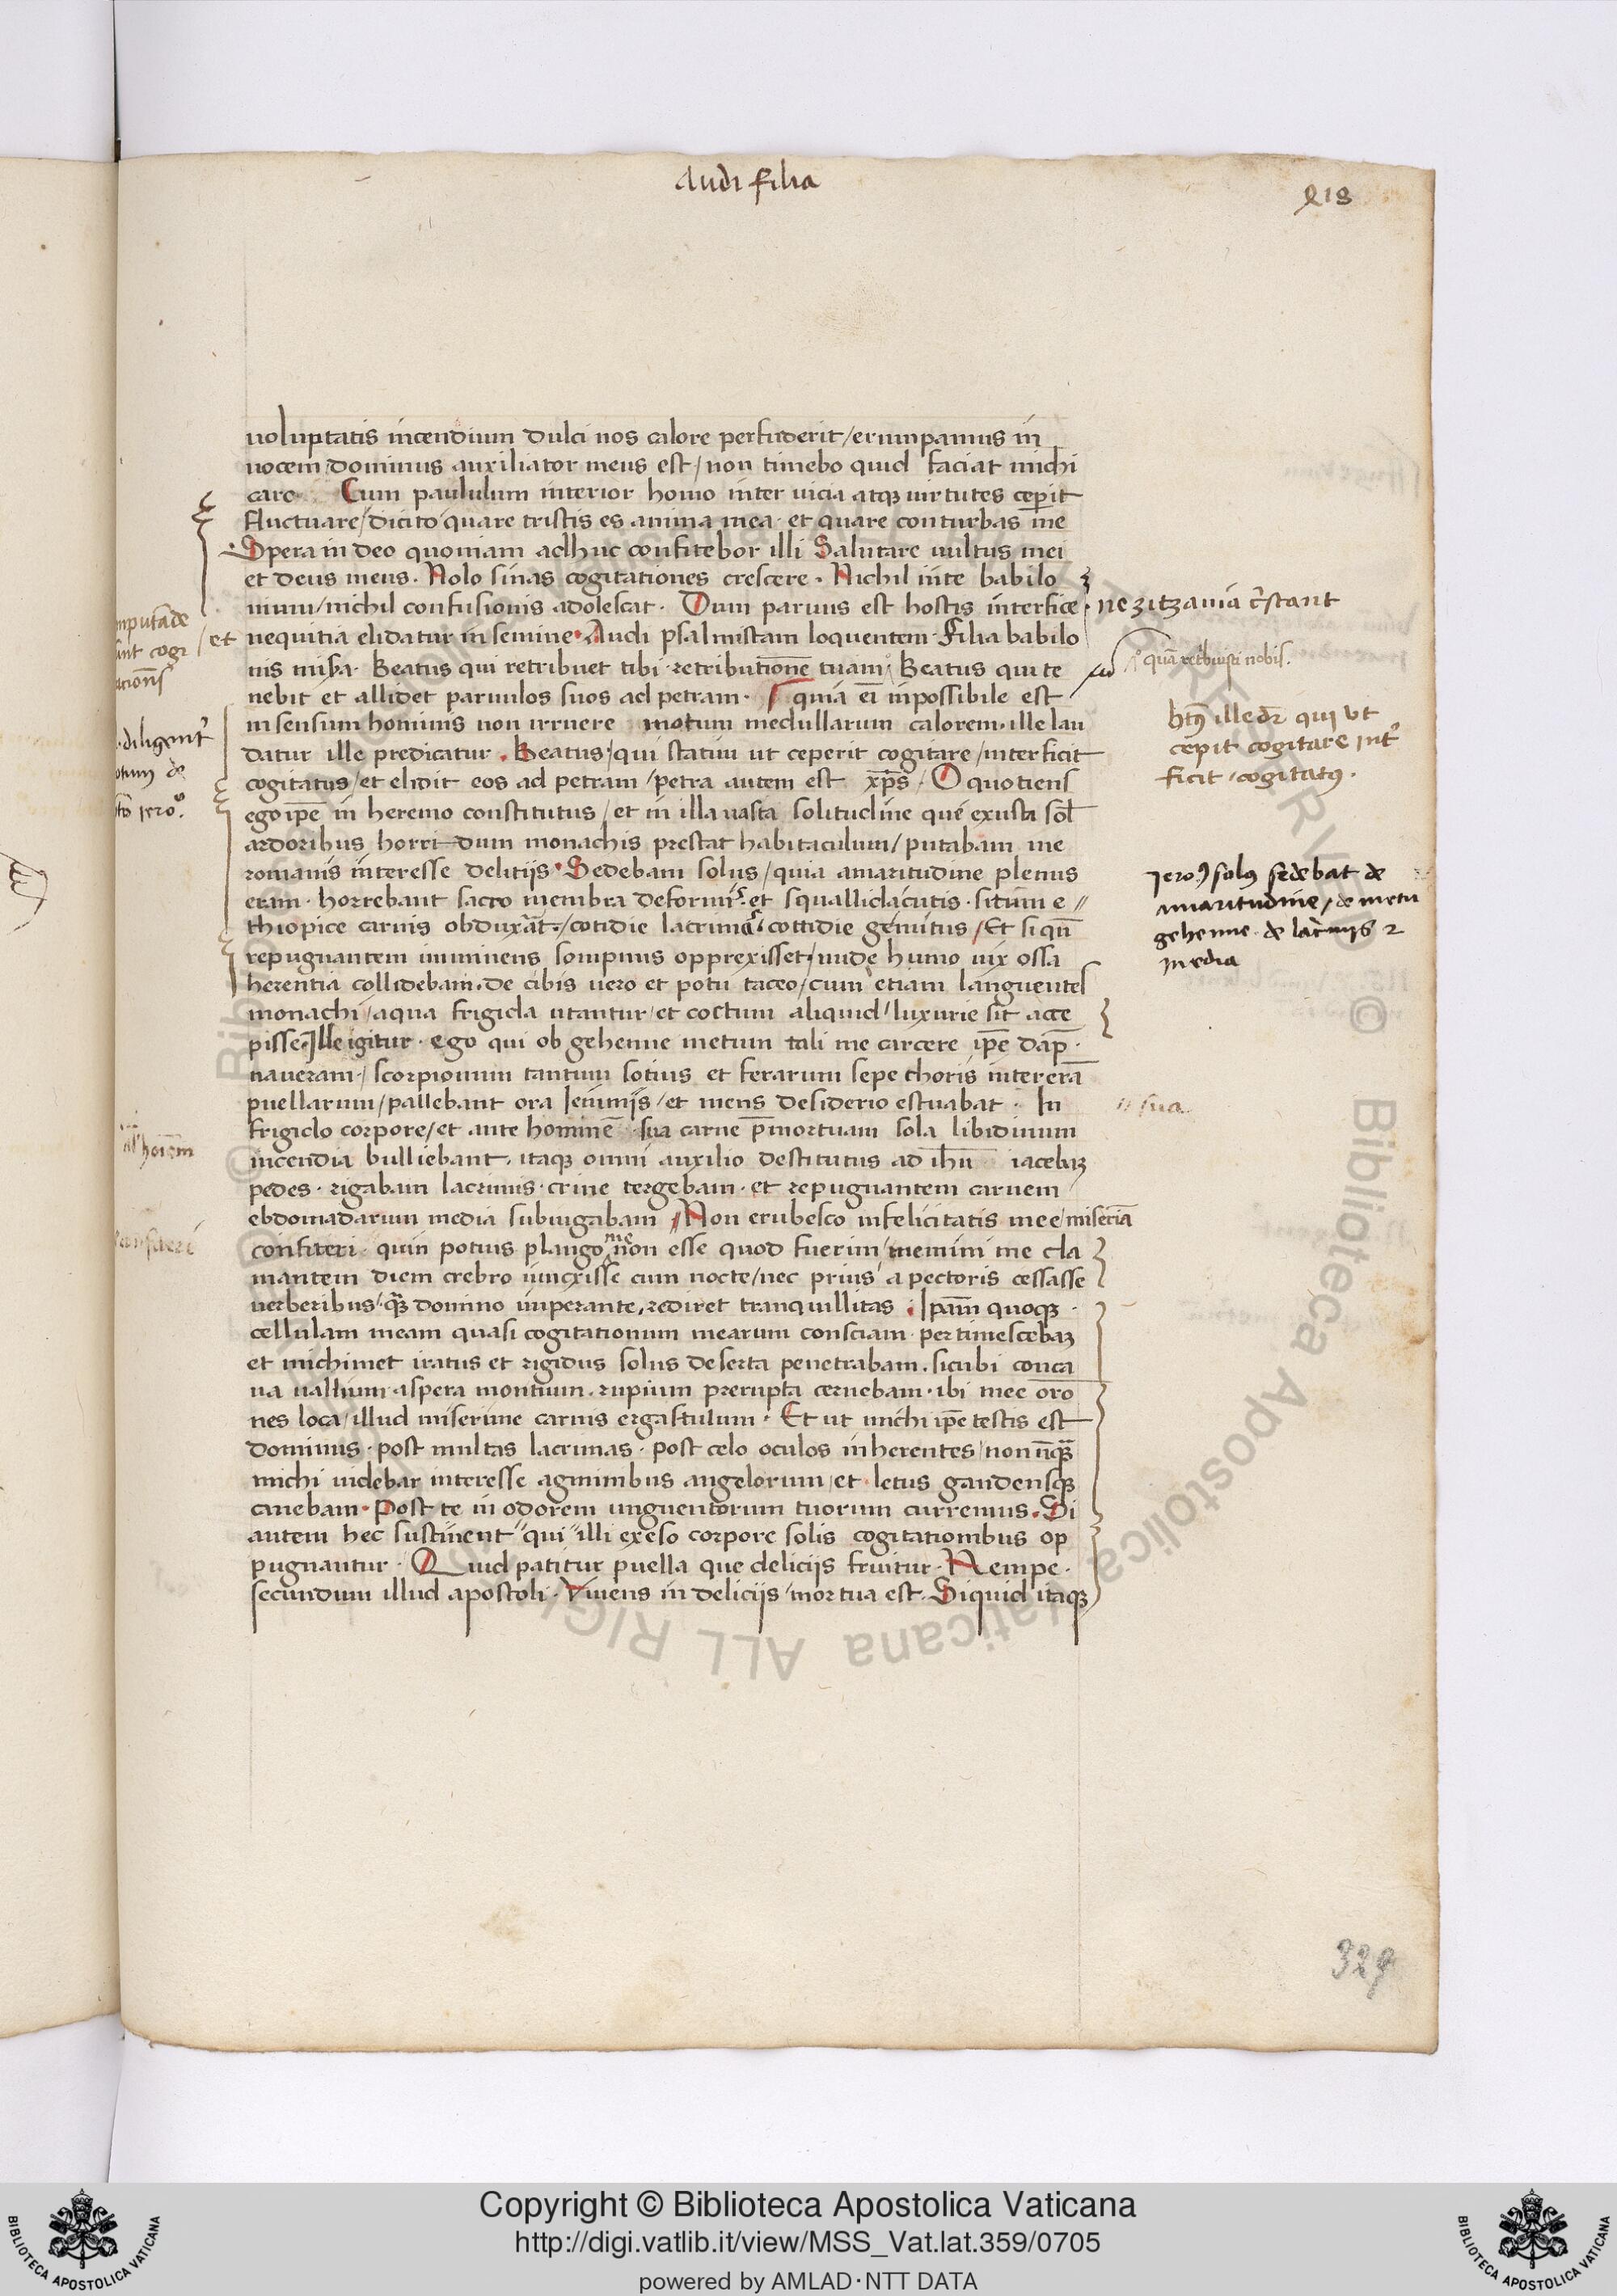 Audi filia
218
voluptatis incendium dulci nos calore perfuderit / erumpamus in
vocem / dominus auxiliator meus est / non timebo quid faciat michi
caro Cum paululum interior homo inter vicia atqꝫ virtutes ceperit
fluctuare / dicito quare tristis es anima mea · et quare conturbas me
Spera in deo quoniam adhuc confitebor illi Salutare vultus mei
et deus meus · Nolo sinas cogitationes crescere · Nichil in te babilo
nium / nichil confusionis adolescat · Dum parvus est hostis interfice · ne zitzania crͥstant
et nequitia elidatur in semine · Audi psalmistam loquentem · Filia babilo
nis misͣa · Beatus qui retribuet tibi · retributione᷒ tuam Beatus qui te
quā retͥbuisti nobis.
nebit et allidet parvulos suos ad petram · quia eī inpossibile est
in sensum hominis non irruere motum medullarum calorem · ille lau
datur ille predicatur · Beatus / qui statim ut ceperit cogitare / interficit
cogitatus / et elidit eos ad petram / petra autem est xp̄s · O quotiens
ego ip̄e in heremo constitutus / et in illa vasta solitudine que exusta sol̄
ardoribus horridum monachis prestat habitaculum / putabam me
romanis interesse delitijs · Sedebam solus / quia amaritudine plenus
eram · horrebant sacco membra deformͥ et squallida cutis · situm e
thiopice carnis obduxͣat · / cotidie lacrime cottidie gemitus / Et si qn̄
repugnantem imminens sompnus opprexisset / nude humo vix ossa
herentia collidebam · de cibis vero et potu taceo / cum etiam languentes
monachi / aqua frigida utantur / et coctum aliquid / luxurie sit acce
pisse Ille igitur · ego qui ob gehenne metum tali me carcere ip̄e dāp
naveram · / scorpionum tantum sotius et ferarum sepe choris intererā
puellarum / pallebant ora ieiunijs / et mens desiderio estuabat · In
frigido corpore / et ante hominē sua carne p̄mortuam sola libidinum
incendia bulliebant · itaqꝫ omni auxilio destitutus ad ih̄u iacebaꝫ
pedes · rigabam lacrimis · crine tergebam · et repugnantem carnem
ebdomadarum media subiugabam Non erubesco infelicitatis mee / miseriā
confiteri · quin potius plango me non esse quod fuerim / memini me cla
mantem diem crebro iuncxisse cum nocte / nec prius a pectoris cessasse
verberibus / qͣꝫ domino imperante, rediret tranquillitas · Ipām quoqꝫ ·
cellulam meam quasi cogitationum mearum consciam pertimescebaꝫ
et michimet iratus et rigidus solus deserta penetrabam · sicubi conca
va vallium · aspera montium · rupium prerupta cernebam · ibi mee or̄o
nes loca / illud miserime carnis ergastulum · Et ut michi ip̄e testis est
dominus · post multas lacrimas · post celo oculos inherentes / non nūqͣꝫ
michi videbar interesse agminibus angelorum / et letus gaudensqꝫ
canebam · Post te in odorem unguentorum tuorum curremus · Si
autem hec sustinent qui illi exeso corpore solis cogitationibus op
pugnantur · Quid patitur puella que deliciis fruitur · Nempe ·
secundum illud apostoli · Vivens in deliciis / mortua est · Siquid itaqꝫ
btꝰ ille dr̄ qui ut
cepit cogitare intͥ
ficit · cogitatꝰ.
Jero. solꝰ sedebat de
amaritudine / de metu
gehenne · de lacͥmis 2
media
sua
mputade
unt cogi
· diligentͥ
Jero.º
hoīem
329
Copyright © Biblioteca Apostolica Vaticana
http://digi.vatlib.it/view/MSS_Vat.lat.359/0705
powered by AMLAD·NTT DATA
BIBLIOTECA APOSTOLICA VATICANA
BIBLIOTECA APOSTOLICA VATICANA
© Biblioteca Apostolica Vaticana ALL RIGHTS RESERVED